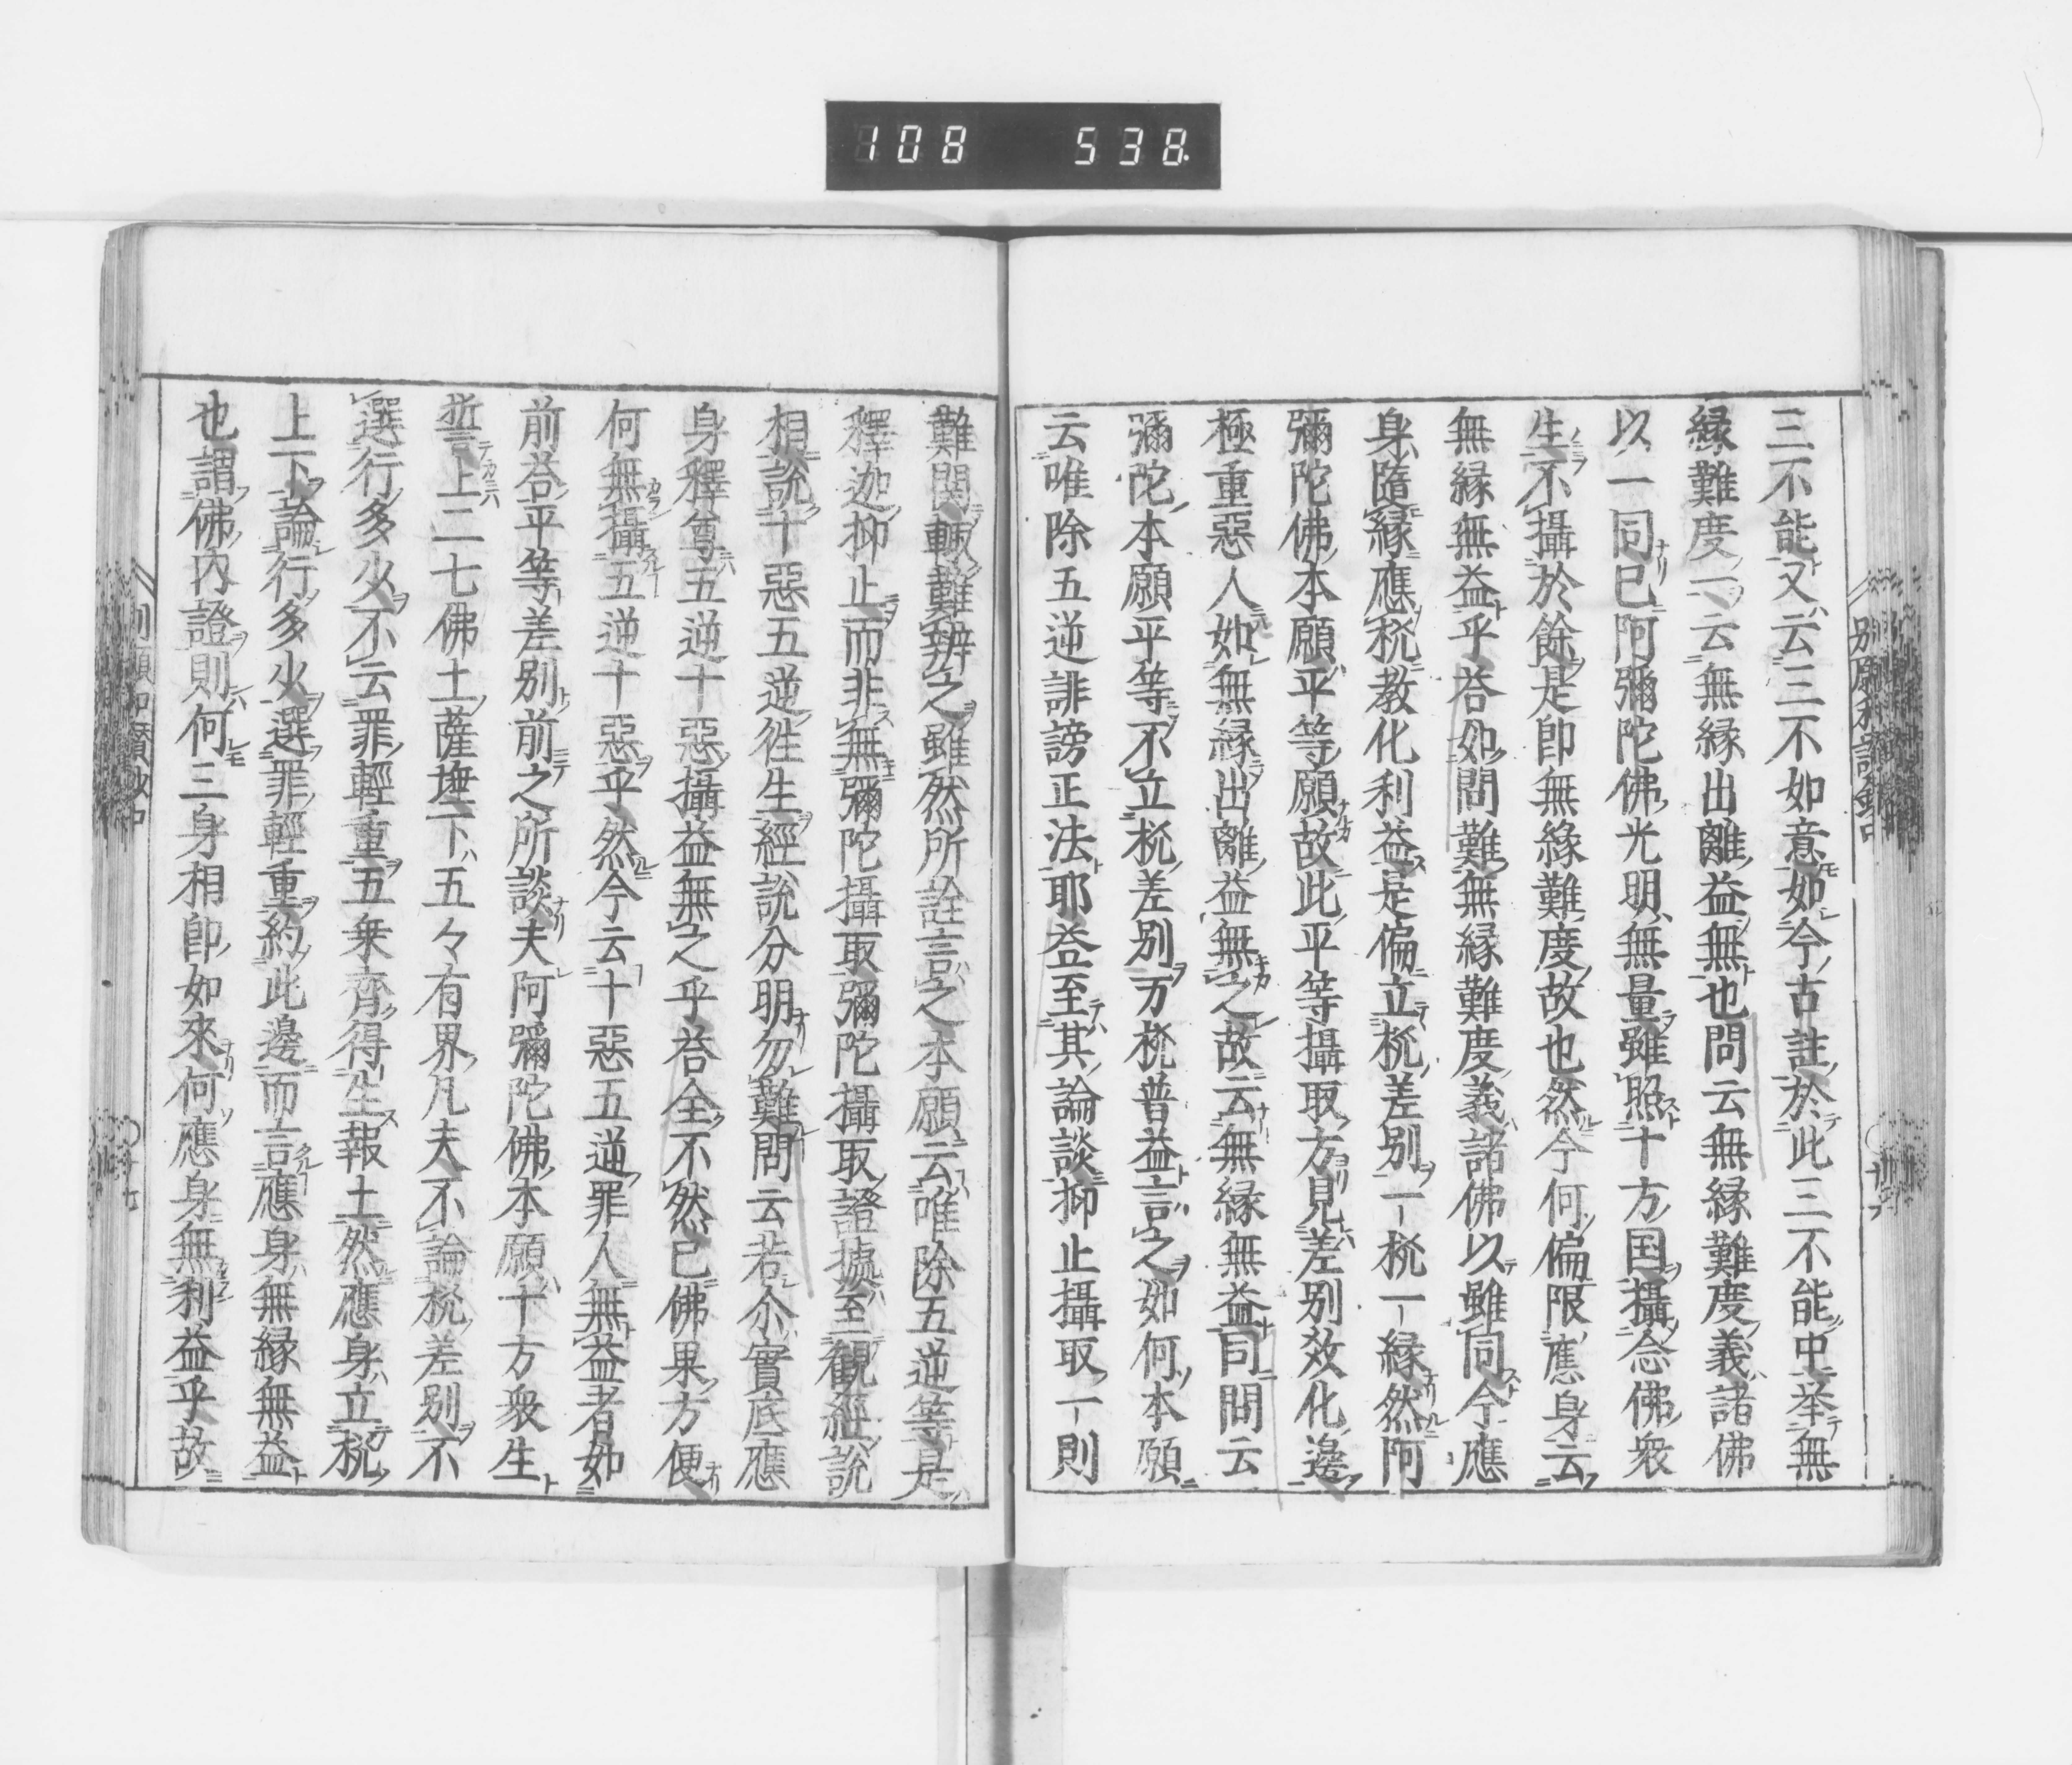 108 538
三不能又云三不如意如今古註於此三不能中举無
縁難度一云無縁出離益無也問云無縁難度義諸佛
以一同已阿彌陀佛光明無量雖照十方国攝念佛衆
生不攝於餘是即無縁難度故也然今何偏限應身云
無縁無益乎荅如問難無縁難度義諸佛以雖同今應
身隨縁應机教化利益是偏立机差別一机一縁然阿
彌陀佛本願平等願故此平等攝取方見差別效化邊
極重惡人如無縁出離益無之故云無縁無益同問云
彌陀本願平等不立机差別万机普益言之如何本願
云唯除五逆誹謗正法耶荅至其論談抑止攝取一則
難関輙難辨之雖然所詮言之本願云唯除五逆等是
釋迦抑止而非無彌陀攝取彌陀攝取證據至観経説
相説十惡五逆往生經説分明勿難問云若尒實底應
身釋尊五逆十惡攝益無之乎荅全不然已佛果方便
何無攝五逆十惡乎然今云十惡五逆罪人無益者如
前荅平等差別前之所談夫阿彌陀佛本願十方衆生
誓上二七佛土薩墲下五々有界凡夫不論机差別不
選行多火不云罪輕重五乗齊得生報土然應身立机
上下論行多火選罪輕重約此邊而言應身無縁無益
也謂佛内證則何三身相即如來何應身無利益乎故